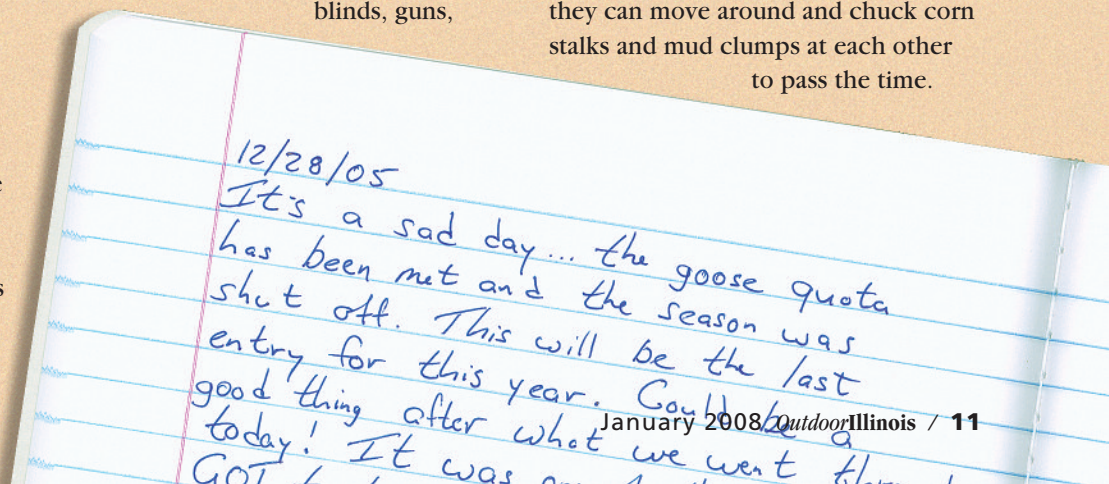 blinds, guns,
they can move around and chuck corn
stalks and mud clumps at each other
to pass the time.
12/28/05
It's a sad day... the goose quota
has been met and the season was
shut off. This will be the last
entry for this year. Could be a
good thing after what we went
today! It was
GOT
January 2008 OutdoorIllinois / 11